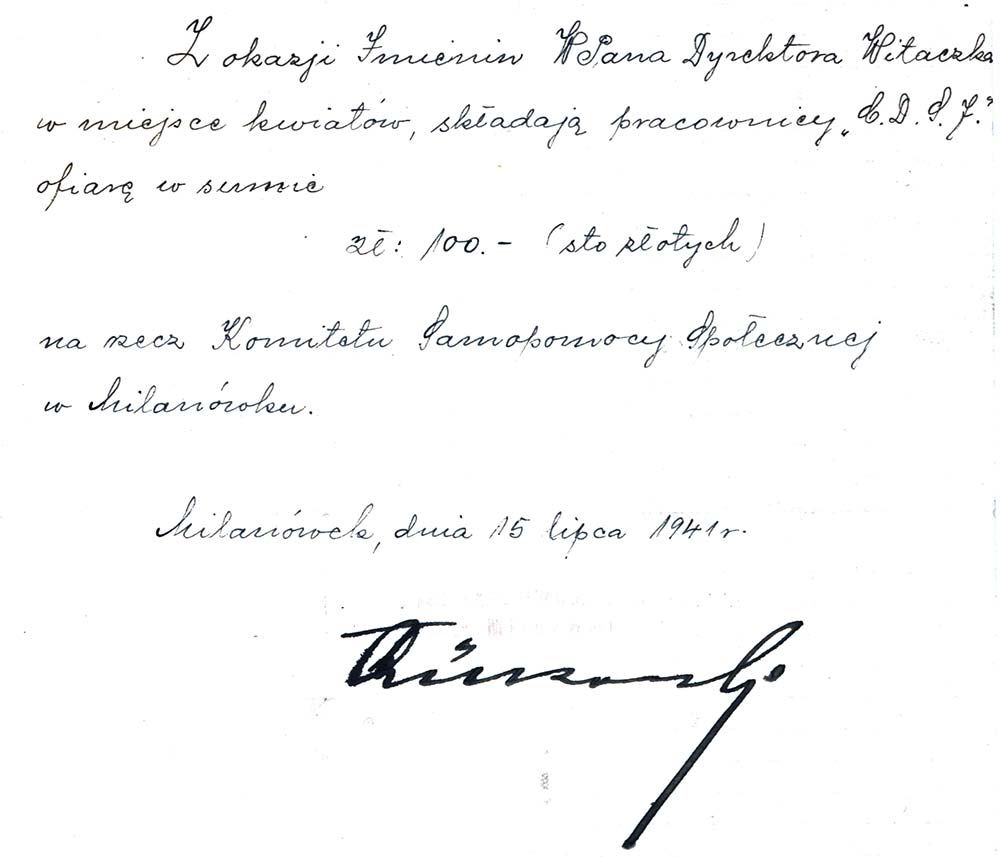 Z okazji Imienin WPana Dyrektora Witaczka
w miejsce kwiatów, składają pracownicy „C.D.S.J.”
ofiarę w sumie
zł: 100.- (sto złotych)
na rzecz Komitetu Samopomocy Społecznej
w Milanówku.
Milanówek, dnia 15 lipca 1941 r.